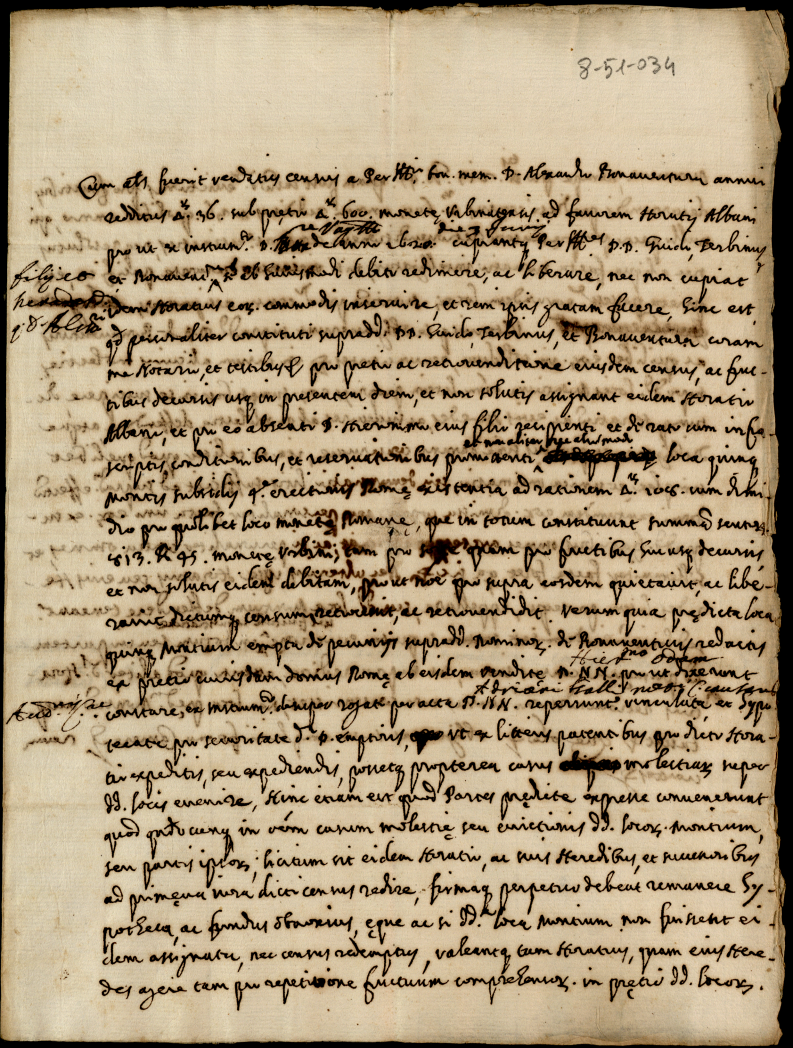 8-51-034
Cum als fuerit venditus census a Per Ill. bon. mem. D. Alexandro Bonaventura annui
redditus 36. sub pretio 600. monetę Urbinatensis ad favorem Horatij Albani
prout ex instrum. D. de anno cupiantq Per Ill.es D.D. Guido, Terbinus,
et Bonavent. ab huiusmodi debito redimere, ac liberare, nec non cupiat
filij et
heredes
q. D. Alex.
idem Horatius eor. commodis inservire, et rem ipsis gratam facere, hinc est
qd personaliter constituti supradd. DD. Guido, Terbinus, et Bonaventura coram
me Notario, et testibus pro pretio ac retrovenditione eiusdem census, ac fruc-
tibus decursis usq in presentem diem, et non solutis assignant eidem Horatio
Albani, et pro eo absenti D. Hieronimo eius filio recipienti et de rato cum infra-
et non aliter nec alio modo
scriptis conditionibus, et reservationibus promittenti loca quinq
Montis subsidij 4. erectionis Romę existentia ad rationem 108. cum dimi-
dio pro quolibet loco monetę Romane, que in totum constituunt summā scutor.
813. 45. monetę Urbini, tam pro quam pro fructibus huc usq decursis,
et non solutis eidem debitam, prout pro supra eosdem quietavit, ac libe-
ravit dictumq censum retrodedit, ac retrovendidit. Verum quia prędicta loca
quinq Montium empta de pecunijs supradd. Nominor. de Bonaventuris redactis
ex pretio cuiusdam domus Romę ab eisdem venditę D. NN. prout dixerunt
Adriani Galli not. C. causarum
constare, ex instrum. desuper rogato per acta D. NN. reperiunt. vinculata et Hypo-
tecata pro securitate d. D. emptoris, ut ex litteris patentibus pro dicto Hora-
tio expeditis, seu expediendis, possetq propterea casus molestiar super
dd. locis evenire, Hinc etiam est quod Partes prędite expresse convenerunt
quod qndocunq in oēm casum molestię seu evictionis dd. locor. Montium,
seu partis ipsor., licitum sit eidem Horatio, ac suis Heredibus, et successoribus
ad primęva iura dicti census redire, firmaq perpetuo debeat remanere Hy-
potheca, ac fundus obnoxius, ęque ac si dd. loca Montium non fuissent ei-
dem assignata, nec census redemptus, valeantq tam Horatius, quam eius Here-
des agere tam pro repetitione fructuum comprehensor. in pręcio dd. locor.